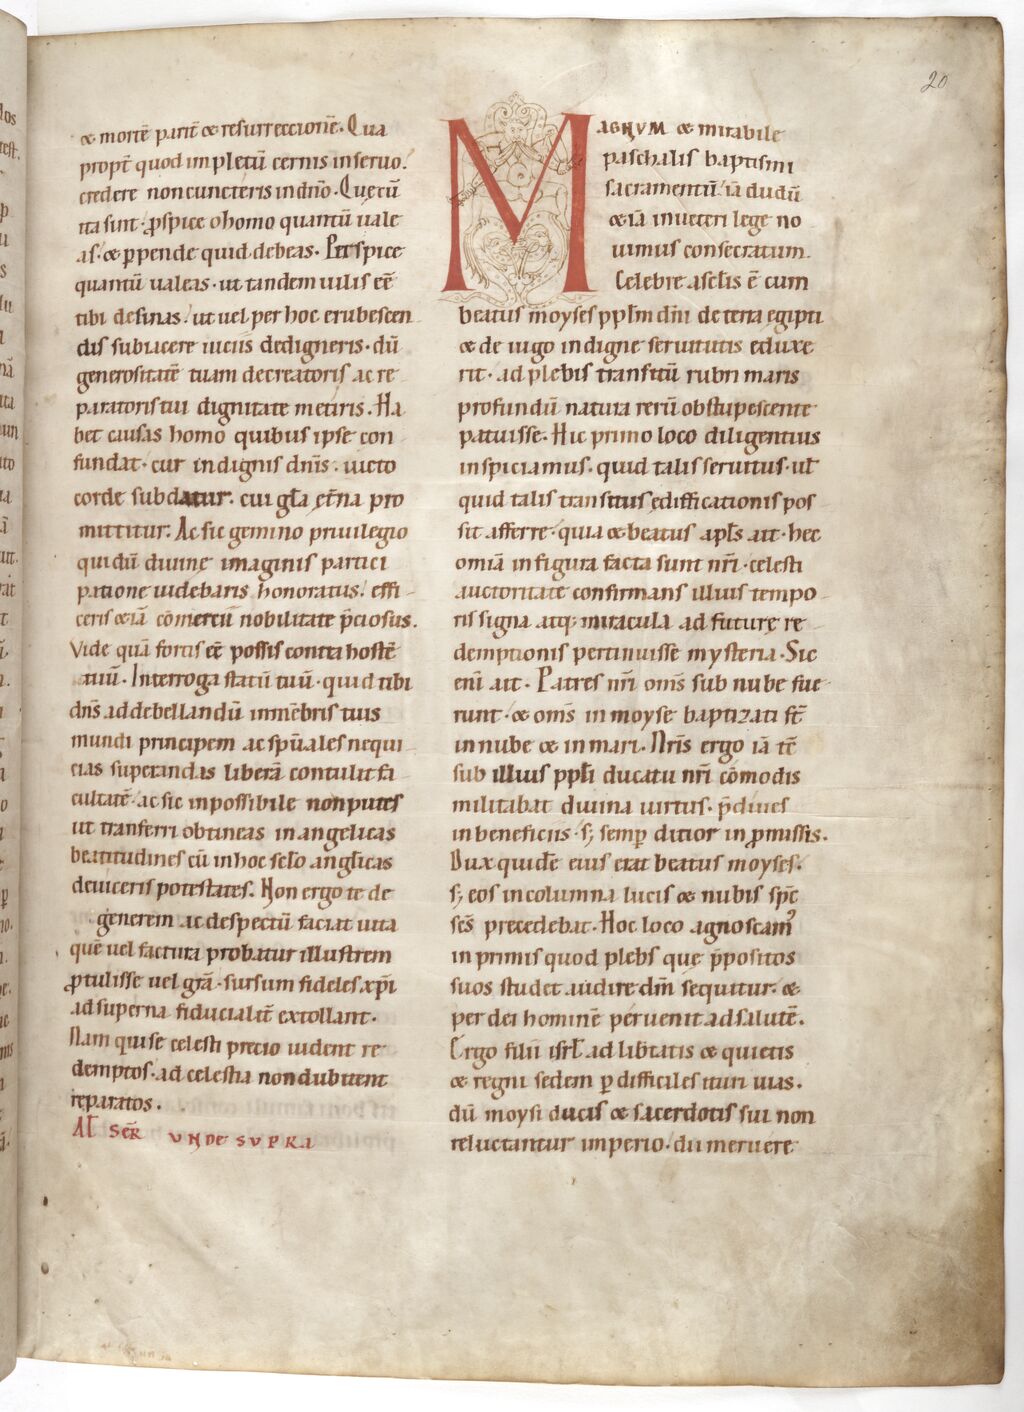 20
& mortē parit̄ & resurreccionē. Qua
propt̄ quod impletū cernis in seruo.
credere non cuncteris in dn̄o. Quęcū
ita sint. ꝓspice o homo quantū uale
as. & ꝑpende quid debeas. Perspice
quantū ualeas. ut tandem uilis eē
tibi desinas. ut uel per hoc erubescen
dis subiacere uiciis dedigneris. dū
generositatē tuam de creatoris ac re
paratoris tui dignitate metiris. Ha
bet causas homo quibus ipse con
fundat. cur indignis dn̄is. uicto
corde subdatur. cui gl̄a ęt̄na pro
mittitur. Ac sic gemino priuilegio
qui dū diuinę imaginis partici
patione uidebaris honoratus. effi
ceris &iā cōmerciī nobilitate p̄ciosus.
Vide quā fortis eē possis contra hostē
tuū. Interroga statū tuū. quid tibi
dn̄s ad debellandū in mēbris tuis
mundi principem ac sp̄uales nequi
cias superandas liberā contulit fa
cultatē. ac sic inpossibile non putes
ut tranferri obtineas in angelicas
beatitudines cū in hoc sc̄lo anglicas
deuiceris potestates. Non ergo te de
generem ac despectū faciat uita
quē uel factura probatur illustrem
ꝓtulisse uel grā. sursum fideles xp̄i
ad superna fiducialit̄ extollant.
Nam qui se celesti precio uident re
demptos. ad celestia non dubitent
reparatos.
Al̄ SER̄ VNDE SVPRA
MAGNVM & mirabile
paschalis baptismi
sacramentū iā dudū
&iā in ueteri lege no
uimus consecratum.
Celebre asc̄lis ē cum
beatus moyses ppl̄m dn̄i de terra egipti
& de iugo indigne seruitutis eduxe
rit. ad plebis transitū rubri maris
profundū natura rerū obstupescente
patuisse. Hic primo loco diligentius
inspiciamus. quid talis seruitus. ul̄
quid talis transitus ędifficationis pos
sit afferre. quia & beatus apl̄s ait. hec
omiā in figura facta sunt nr̄i. celesti
auctoritate confirmans illius tempo
ris signa atq; miracula ad futurę re
demptionis pertinuisse mysteria. Sic
enī ait. Patres nr̄i om̄s sub nube fue
runt. & om̄s in moyse baptizati st̄
in nube & in mari. Nr̄is ergo iā tē
sub illius ppl̄i ducatu nr̄i cōmodis
militabat diuina uirtus. p̄diues
in beneficiis. s; semꝑ ditior in ꝓmissis.
Dux quidē eius erat beatus moyses.
s; eos in columna lucis & nubis sp̄c
sc̄s precedebat. Hoc loco agnoscam᾿
in primis quod plebs quę p̄positos
suos studet audire dm̄ sequitur. &
per dei hominē peruenit ad salutē.
Ergo filii isrl̄ ad lib̄tatis & quietis
& regni sedem ꝑ difficiles ituri uias.
dū moysi ducis & sacerdotis sui non
reluctantur imperio. du meruere